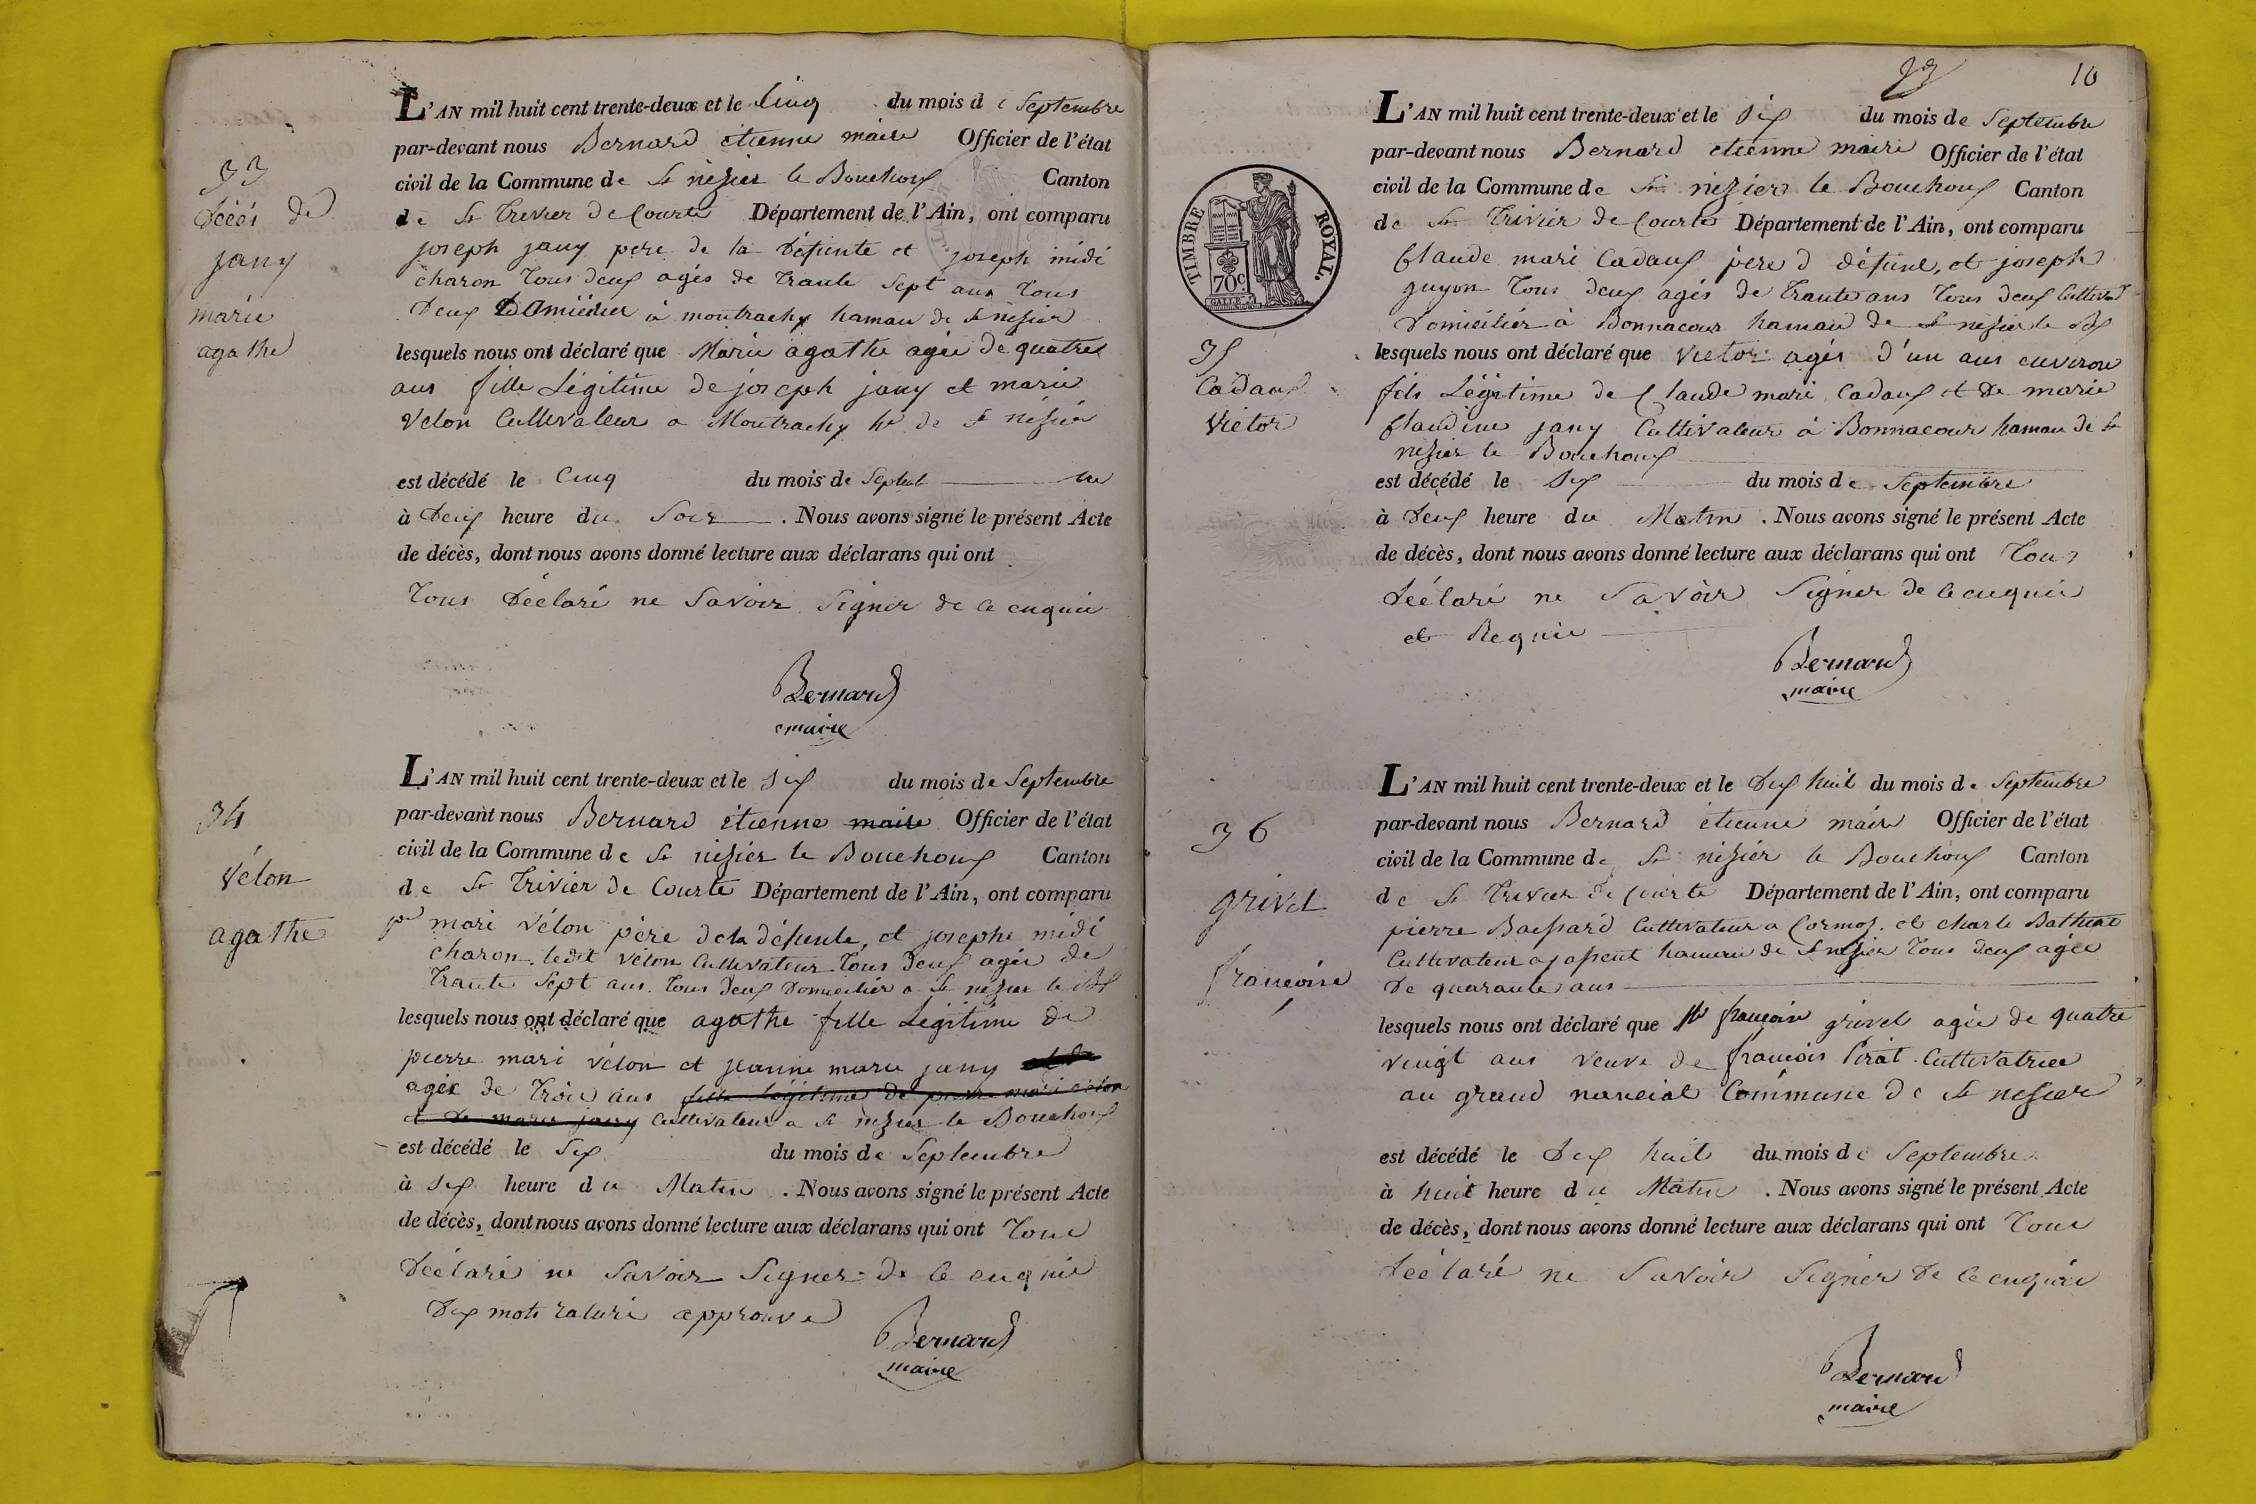 33
Décés de
jany
marie
agathe
L'AN mil huit cent trente-deux et le Cinq du mois de Septembre
par-devant nous Bernard etienne maire Officier de l'état
civil de la Commune de St nésier le Bouchoux Canton
de St Trevier de Courte Département de l'Ain, ont comparu
joseph jany pere de la défunte et joseph midi
charon Tous deux agés de Trante Sept ans Tous
Deux Domicilier a montrachy hamau de St nesier
lesquels nous ont déclaré que Marie agathe agée de quatres
ans fille Légitime de joseph jany et marie
velon Cultivateur a Montrachy hu de St nésier
est décédé le Cinq du mois de Septeb re
à Deux heure du Soir . Nous avons signé le présent Acte
de décès, dont nous avons donné lecture aux déclarans qui ont
Tous Déclaré ne Savoir Signer de ce enquie
Bernard
maire
34
vélon
agathe
L'AN mil huit cent trente-deux et le Six du mois de Septembre
par-devant nous Bernard etienne maire Officier de l'état
civil de la Commune de St niziér le Bouchoux Canton
de St Trivier de Courte Département de l'Ain, ont comparu
pre mari vélon père de la défunte, et josephe midi
charon ledit vélon Cultivateur Tous deux agée de
Trante Sept ans Tous deux Domicilier a St nezier le BX
lesquels nous ont déclaré que agathe fille Légitime de
pierre mari vélon et jeanne marie jany et de
agée de Trois ans fille légitime de pierre mari vélon
et de marie jany Cultivateur a St nizier le Bouchoux
est décédé le Six du mois de Septembre
à Six heure du Matin . Nous avons signé le présent Acte
de décès, dont nous avons donné lecture aux déclarans qui ont Tous
Déclaré ne Savoir Signer de ce enquie
Dix mots raturé approuve
Bernard
maire
33 10
TIMBRE ROYAL.
70c.
35
Cadaux
Victor
L'AN mil huit cent trente-deux et le Six du mois de Septembre
par-devant nous Bernard etienne maire Officier de l'état
civil de la Commune de St niziers le Bouchoux Canton
de St Trivier de Courte Département de l'Ain, ont comparu
Claude mari Cadaux père d défunt, et joseph
guyon Tous deux agés de Trante ans Tous deux Cultivat
Domicilier à Bonnacour hamau de St nezier le BX
lesquels nous ont déclaré que Victor agés d'un ans environ
fils Légitime de Claude mari Cadaux et de marie
Claudine jany Cultivateur à Bonnacour hamau de St
nezier le Bouchoux
est décédé le Six du mois de Septembre
à Deux heure du Matin . Nous avons signé le présent Acte
de décès, dont nous avons donné lecture aux déclarans qui ont Tous
Déclaré ne Savoir Signer de ce enquie
et Requie
Bernard
maire
36
grivel
françoise
L'AN mil huit cent trente-deux et le Dix huit du mois de Septembre
par-devant nous Bernard étienne maire Officier de l'état
civil de la Commune de St niziér le Bouchoux Canton
de St Trevier de Courte Département de l'Ain, ont comparu
pierre Cultivateur a Cormoz et charle
Cultivateur a hameau de St nezier Tous deux agée
De quarante ans
lesquels nous ont déclaré que françoise grivel agée de quatre
veingt ans veuve de françois Pirat Cultivatrice
au grand Commune de St nesier
est décédé le Dix huit du mois de Septembre
à huit heure du Matin . Nous avons signé le présent Acte
de décès, dont nous avons donné lecture aux déclarans qui ont Tous
Déclaré ne Savoir Signer de ce enquie
Bernard
maire